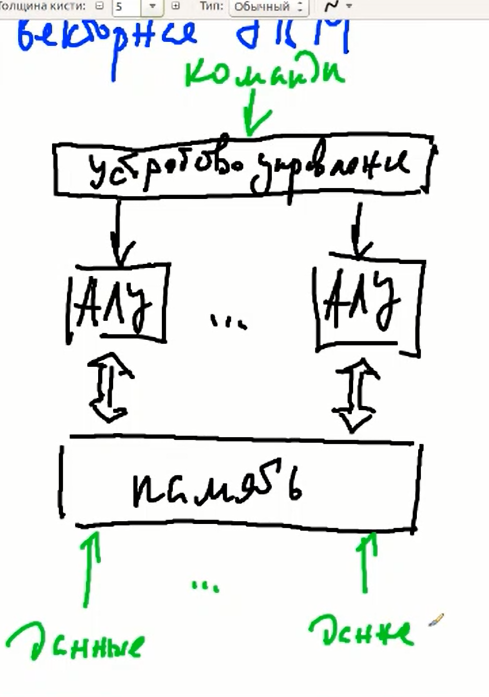 Толщина кисти: 5 Тип: Обычный
векторные
команды
устройство управление
АЛУ ... АЛУ
память
...
данные данные